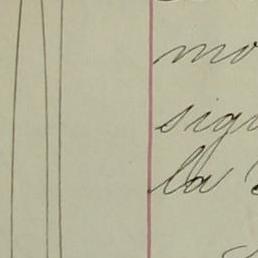 mo
sig
la